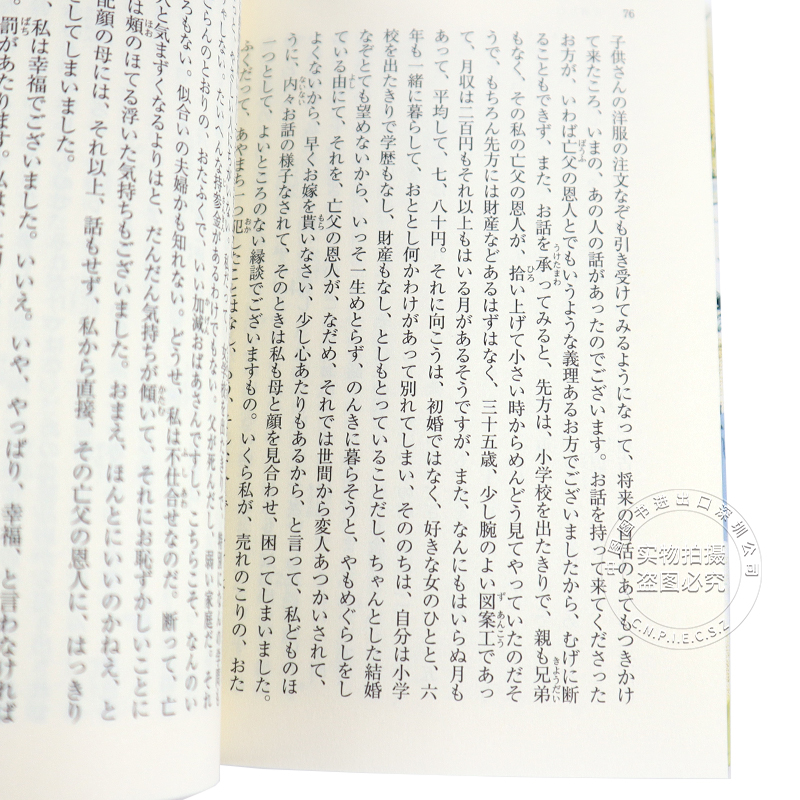 76
子供さんの洋服の注文なぞも引き受けてみるようになって、将来の自活のあてもつきかけ
て来たころ、いまの、あの人の話があったのでございます。お話を持って来てくださった
お方が、いわば亡父の恩人とでもいうような義理あるお方でございましたから、むげに断
ることもできず、また、お話を承ってみると、先方は、小学校を出たきりで、親も兄弟
もなく、その私の亡父の恩人が、拾い上げて小さい時からめんどう見てやっていたのだそ
うで、もちろん先方には財産などあるはずはなく、三十五歳、少し腕のよい図案工であっ
て、月収は二百円もそれ以上もはいる月があるそうですが、また、なんにもはいらぬ月も
あって、平均して、七、八十円。それに向こうは、初婚ではなく、好きな女のひとと、六
年も一緒に暮らして、おととし何かわけがあって別れてしまい、そののちは、自分は小学
校を出たきりで学歴もなし、財産もなし、としもとっていることだし、ちゃんとした結婚
なぞとても望めないから、いっそ一生めとらず、のんきに暮らそうと、やもめぐらしをし
ている由にて、それを、亡父の恩人が、なだめ、それでは世間から変人あつかいされて、
よくないから、早くお嫁を貰いなさい、少し心あたりもあるから、と言って、私どものほ
うに、内々お話の様子なされて、そのときは私も母と顔を見合わせ、困ってしまいました。
一つとして、よいところのない縁談でございますもの。いくら私が、売れのこりの、おた
ふくだって、あやまち一つ犯したことはなし、
ゃしない。たいへんな持参金があるわけでもない。父が死んだし、弱い家庭だ。それ
ごらんのとおりの、おたふくで、いい加減おばあさんですし、こちらこそ、なんのい
ろもない。似合いの夫婦かも知れない。どうせ、私は不仕合せなのだ。断って、亡
人と気まずくなるよりはと、だんだん気持ちが傾いて、それにお恥ずかしいことに
は頬のほてる浮いた気持ちもございました。おまえ、ほんにいいのかねえ、と
配顔の母には、それ以上、話もせず、私から直接、その亡父の恩人に、はっきり
してしまいました。
、私は幸福でございました。いいえ。いや、やっぱり、幸福、と言わなければ
。罰があたります。私は、
中国图书进出口深圳公司
实物拍摄
盗图必究
C.N.P.I.E.C.S.Z